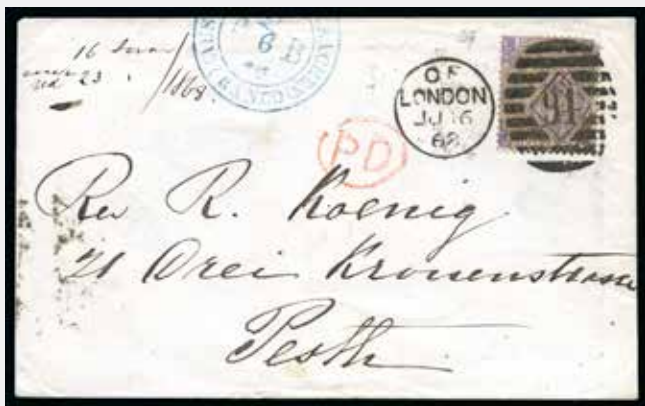 16
23
1868.
6
B
LONDON
JU 16
68
91
PD
Rev R. Koenig
21 Drei Kronenstrasse
Pesth